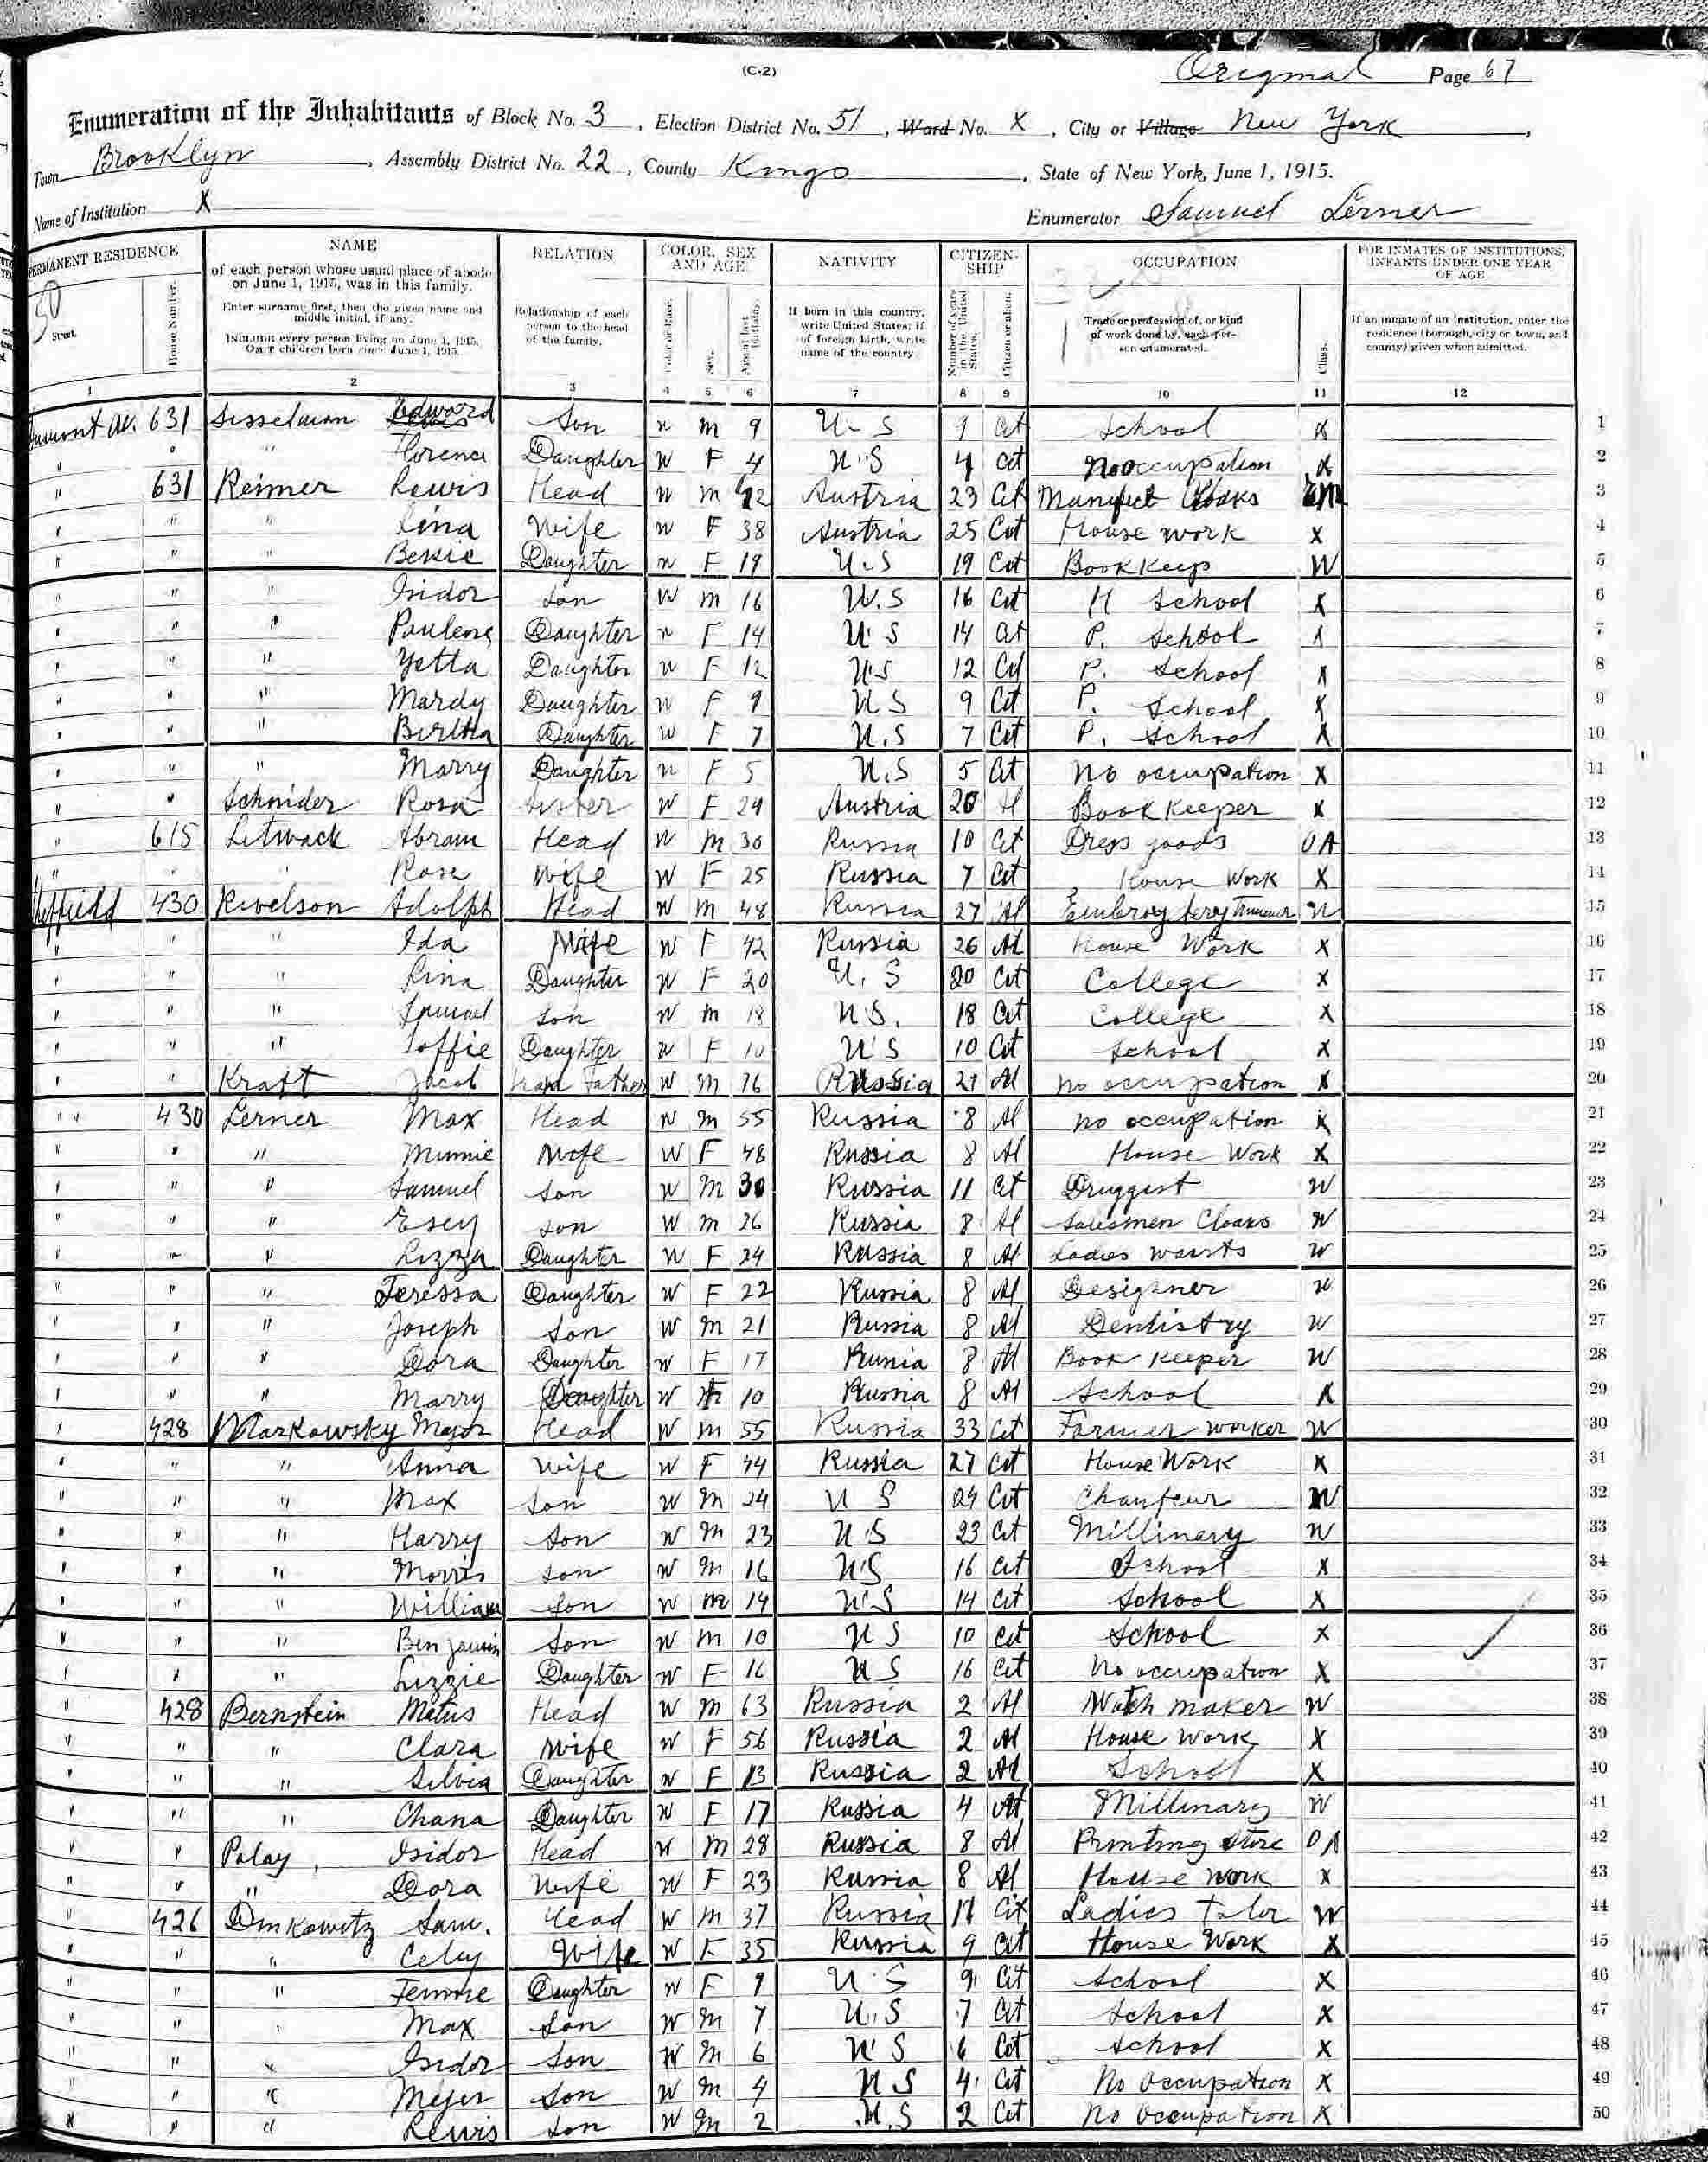 (C-2)
Original Page 67
Enumeration of the Inhabitants of Block No. 3, Election District No. 51, Ward No. X, City or Village New York,
Town Brooklyn, Assembly District No. 22, County Kings, State of New York, June 1, 1915.
Name of Institution X Enumerator Samuel Lerner
PERMANENT RESIDENCE
Street.
House Number.
1
NAME
of each person whose usual place of abode on June 1, 1915, was in this family.
Enter surname first, then the given name and middle initial, if any.
INCLUDE every person living on June 1, 1915. OMIT children born since June 1, 1915.
2
RELATION
Relationship of each person to the head of the family.
3
COLOR, SEX AND AGE
Color or Race.
Sex.
Age at last birthday.
4 5 6
NATIVITY
If born in this country, write United States; if of foreign birth, write name of the country
7
CITIZENSHIP
Number of years in the United States.
Citizen or alien.
8 9
OCCUPATION
Trade or profession of, or kind of work done by, each person enumerated.
Class.
10 11
FOR INMATES OF INSTITUTIONS, INFANTS UNDER ONE YEAR OF AGE
If an inmate of an Institution, enter the residence (borough, city or town, and county) given when admitted.
12
631 Sisselman Edward Son W M 9 U-S 9 Cit School X 1
" " " Florence Daughter W F 4 U.S 4 Cit No occupation X 2
" 631 Reimer Lewis Head W M 42 Austria 23 Cit Manufct Cloaks EM 3
" " " Lina Wife W F 38 Austria 25 Cit House work X 4
" " " Bessie Daughter W F 19 U.S 19 Cit Book Keep W 5
" " " Isidor Son W M 16 U.S 16 Cit H School X 6
" " " Paulene Daughter W F 14 U.S 14 Cit P. School X 7
" " " Yetta Daughter W F 12 U.S 12 Cit P. School X 8
" " " Mardy Daughter W F 9 U S 9 Cit P. School X 9
" " " Bertha Daughter W F 7 U.S 7 Cit P. School X 10
" " " Marry Daughter W F 5 U.S 5 Cit No occupation X 11
" " Schnider Rosa Sister W F 24 Austria 20 Al Book Keeper X 12
" 615 Litwack Abram Head W M 30 Russia 10 Cit Dress goods OA 13
" " " Rose Wife W F 25 Russia 7 Cit House Work X 14
Sheffield 430 Rivelson Adolph Head W M 48 Russia 27 Al W 15
" " " Ida Wife W F 42 Russia 26 Al House Work X 16
" " " Lina Daughter W F 20 U.S 20 Cit College X 17
" " " Samuel Son W M 18 U.S. 18 Cit College X 18
" " " Soffie Daughter W F 10 U S 10 Cit School X 19
" " Kraft Jacob Father W M 76 Russia 21 Al no occupation X 20
" " 430 Lerner Max Head W M 55 Russia 8 Al no occupation X 21
" " " Minnie Wife W F 48 Russia 8 Al House Work X 22
" " " Samuel Son W M 30 Russia 11 Cit Druggist W 23
" " " Esey Son W M 26 Russia 8 Al Salesmen Cloaks W 24
" " " Lizza Daughter W F 24 Russia 8 Al Ladies waists W 25
" " " Teressa Daughter W F 22 Russia 8 Al Designner W 26
" " " Joseph Son W M 21 Russia 8 Al Dentistry W 27
" " " Dora Daughter W F 17 Russia 8 Al Book Keeper W 28
" " " Marry Daughter W F 10 Russia 8 Al School X 29
" 428 Markowsky Major Head W M 55 Russia 33 Cit Farmer worker W 30
" " " Anna Wife W F 44 Russia 27 Cit House Work X 31
" " " Max Son W M 24 U S 24 Cit Chaufeur W 32
" " " Harry Son W M 23 U.S 23 Cit Millinary W 33
" " " Morris Son W M 16 U.S 16 Cit School X 34
" " " William Son W M 14 U.S 14 Cit School X 35
" " " Benjamin Son W M 10 U S 10 Cit School X 36
" " " Lizzie Daughter W F 16 U S 16 Cit No occupation X 37
" 428 Bernstein Matus Head W M 63 Russia 2 Al Watch maker W 38
" " " Clara Wife W F 56 Russia 2 Al House Work X 39
" " " Silvia Daughter W F 13 Russia 2 Al School X 40
" " " Chana Daughter W F 17 Russia 4 Al Millinary W 41
" " Palay, Isidor Head W M 28 Russia 8 Al Printing store OA 42
" " " Dora Wife W F 23 Russia 8 Al House Work X 43
" 426 Dinkowitz Sam. Head W M 37 Russia 11 Cit Ladies Taler W 44
" " " Celiy Wife W F 35 Russia 9 Cit House Work X 45
" " " Fennie Daughter W F 9 U.S 9 Cit School X 46
" " " Max Son W M 7 U.S 7 Cit School X 47
" " " Isidor Son W M 6 U S 6 Cit School X 48
" " " Mejer Son W M 4 U S 4 Cit No occupation X 49
" " " Lewis Son W M 2 U.S 2 Cit No occupation X 50